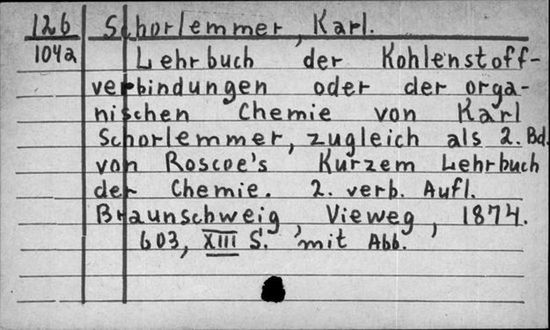 126 Schorlemmer, Karl.
104a Lehrbuch der Kohlenstoff-
verbindungen oder der orga-
nischen Chemie von Karl
Schorlemmer, zugleich als 2. Bd.
von Roscoe's Kurzem Lehrbuch
der Chemie. 2. verb. Aufl.
Braunschweig, Vieweg, 1874.
603, XIII S. mit Abb.